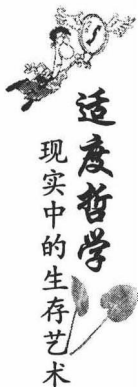 适度哲学
现实中的生存艺术